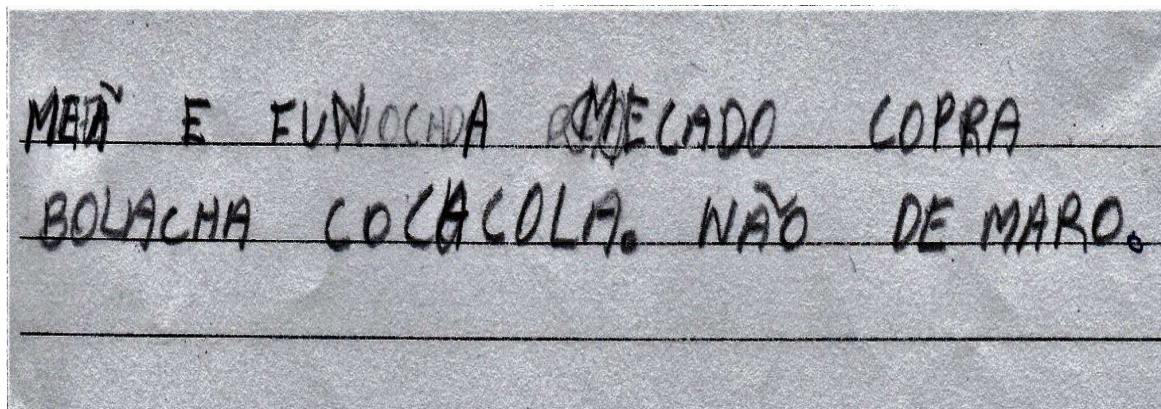 MEÃ E FUN MECADO COPRA
BOLACHA COCACOLA. NÃO DE MARO.